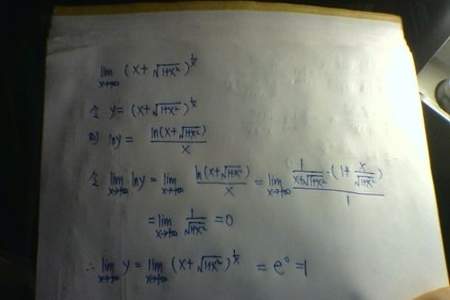 lim x→+∞ (x+√(1+x²))^(1/x)
令 y=(x+√(1+x²))^(1/x)
则 lny= ln(x+√(1+x²))/x
令 lim x→+∞ lny = lim x→+∞ ln(x+√(1+x²))/x = lim x→+∞ (1/(x+√(1+x²))·(1+x/√(1+x²)))/1
= lim x→+∞ 1/√(1+x²) =0
∴ lim x→+∞ y = lim x→+∞ (x+√(1+x²))^(1/x) = e⁰ =1